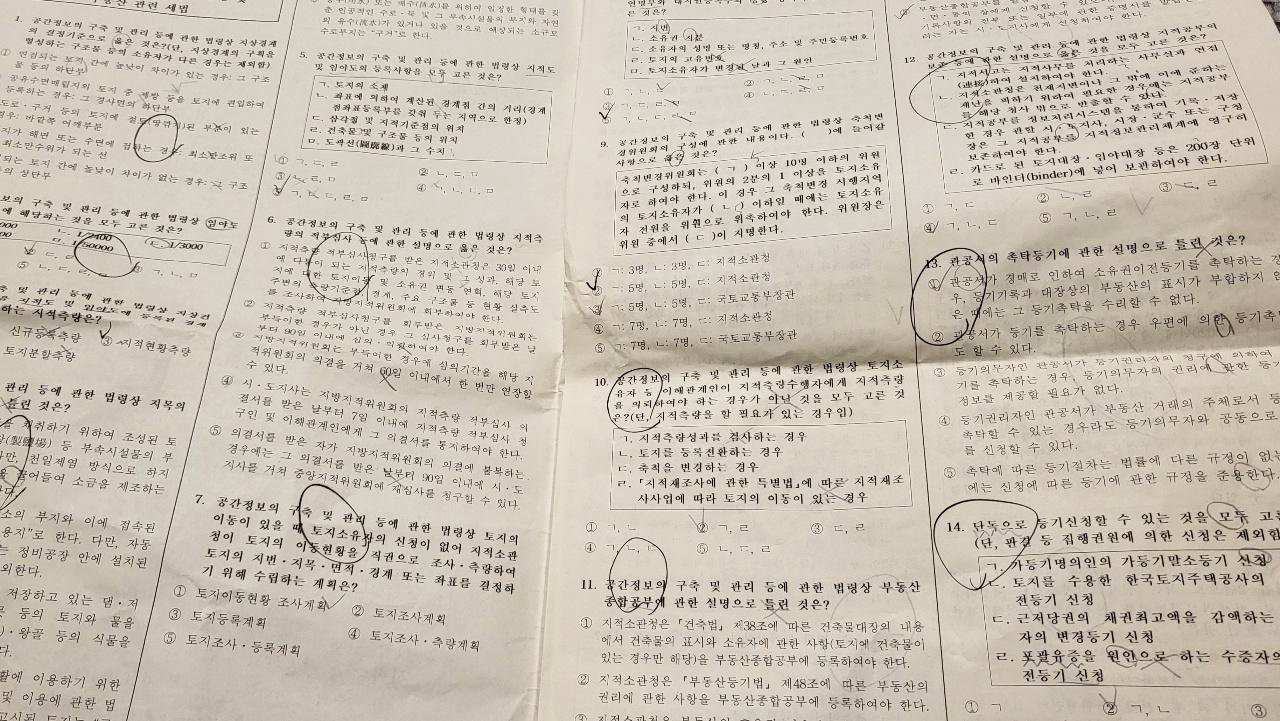 부동산 관련 세법
1. 공간정보의 구축 및 관리 등에 관한 법령상 지상경계
의 결정기준으로 옳은 것은?(단, 지상경계의 구획을
형성하는 구조물 등의 소유자가 다른 경우는 제외함)
① 연결되는 토지 간에 높낮이 차이가 있는 경우: 그 구조
물 등의 하단부
공유수면매립지의 토지 중 제방 등을 토지에 편입하여
등록하는 경우: 바깥쪽 어깨부분
지가 해면 또는 수면에 접하는 경우: 최소만조위 또
최소만수위가 되는 선
되는 토지 간에 높낮이 차이가 없는 경우: 구조
의 상단부
축 및 관리 등에 관한 법령상 임야도
에 해당하는 것을 모두 고른 것은?
ㄴ. 1/2400
ㄷ. 1/3000
ㅁ. 1/50000
하는 지적측량은?
신규등록측량
③ 지적현황측량
토지분할측량
관리 등에 관한 법령상 지목의
틀린 것은?
채취하기 위하여 조성된 토
장(製鹽場) 등 부속시설물의 부
다만, 천일제염 방식으로 하지
끌어들여 소금을 제조하는
소의 부지와 이에 접속된
용지"로 한다. 다만, 자동
는 정비공장 안에 설치된
외한다.
저장하고 있는 댐·저
등의 토지와 물을
)·왕골 등의 식물을
다.
활에 이용하기 위한
및 이용에 관한 법
수도부지는 "구거"로 한다.
5. 공간정보의 구축 및 관리 등에 관한 법령상 지적도
및 임야도의 등록사항을 모두 고른 것은?
ㄱ. 토지의 소재
ㄴ. 좌표에 의하여 계산된 경계점 간의 거리(경계
점좌표등록부를 갖춰 두는 지역으로 한정)
ㄷ. 삼각점 및 지적기준점의 위치
ㄹ. 건축물 및 구조물 등의 위치
ㅁ. 도곽선(圖廓線)과 그 수치
① ㄱ, ㄷ, ㄹ
② ㄴ, ㄷ, ㅁ
6. 공간정보의 구축 및 관리 등에 관한 법령상 지적측
량의 적부심사 등에 관한 설명으로 옳은 것은?
① 지적측량 적부심사청구를 받은 지적소관청은 30일 이내
에 다툼이 되는 지적측량의 경위 및 그 성과, 해당 토
지에 대한 토지이동 및 소유권 변동 연혁, 해당 토지
주변의 측량기준점, 경계, 주요 구조물 등 현황 실측도
를 조사하여 지방지적위원회에 회부하여야 한다.
② 지적측량 적부심사청구를 회부받은 지방지적위원회는
부득이한 경우가 아닌 경우 그 심사청구를 회부받은 날
부터 90일 이내에 심의·의결하여야 한다.
③ 지방지적위원회는 부득이한 경우에 심의기간을 해당 지
적위원회의 의결을 거쳐 60일 이내에서 한 번만 연장할
수 있다.
④ 시·도지사는 지방지적위원회의 지적측량 적부심사 의
결서를 받은 날부터 7일 이내에 지적측량 적부심사 청
구인 및 이해관계인에게 그 의결서를 통지하여야 한다.
⑤ 의결서를 받은 자가 지방지적위원회의 의결에 불복하는
경우에는 그 의결서를 받은 날부터 90일 이내에 시·도
지사를 거쳐 중앙지적위원회에 재심사를 청구할 수 있다.
7. 공간정보의 구축 및 관리 등에 관한 법령상 토지의
이동이 있을 때 토지소유자의 신청이 없어 지적소관
청이 토지의 이동현황을 직권으로 조사·측량하여
토지의 지번·지목·면적·경계 또는 좌표를 결정하
기 위해 수립하는 계획은?
① 토지이동현황 조사계획
② 토지조사계획
③ 토지등록계획
④ 토지조사·측량계획
⑤ 토지조사·등록계획
은 것은?
ㄱ. 지번
ㄴ. 소유권 지분
ㄷ. 소유자의 성명 또는 명칭, 주소 및 주민등록번호
ㄹ. 토지의 고유번호
ㅁ. 토지소유자가 변경된 날과 그 원인
9. 공간정보의 구축 및 관리 등에 관한 법령상 축척변
경위원회의 구성에 관한 내용이다. ( )에 들어갈
사항으로 옳은 것은?
축척변경위원회는 ( ㄱ ) 이상 10명 이하의 위원
으로 구성하되, 위원의 2분의 1 이상을 토지소유
자로 하여야 한다. 이 경우 그 축척변경 시행지역
의 토지소유자가 ( ㄴ ) 이하일 때에는 토지소유
자 전원을 위원으로 위촉하여야 한다. 위원장은
위원 중에서 ( ㄷ )이 지명한다.
ㄱ: 3명, ㄴ: 3명, ㄷ: 지적소관청
ㄱ: 5명, ㄴ: 5명, ㄷ: 지적소관청
ㄱ: 5명, ㄴ: 5명, ㄷ: 국토교통부장관
④ ㄱ: 7명, ㄴ: 7명, ㄷ: 지적소관청
⑤ ㄱ: 7명, ㄴ: 7명, ㄷ: 국토교통부장관
10. 공간정보의 구축 및 관리 등에 관한 법령상 토지소
유자 등 이해관계인이 지적측량수행자에게 지적측량
을 의뢰하여야 하는 경우가 아닌 것을 모두 고른 것
은?(단, 지적측량을 할 필요가 있는 경우임)
ㄱ. 지적측량성과를 검사하는 경우
ㄴ. 토지를 등록전환하는 경우
ㄷ. 축척을 변경하는 경우
ㄹ. 「지적재조사에 관한 특별법」에 따른 지적재조
사사업에 따라 토지의 이동이 있는 경우
① ㄱ, ㄴ
② ㄱ, ㄹ
③ ㄷ, ㄹ
④ ㄱ, ㄴ, ㄷ
⑤ ㄴ, ㄷ, ㄹ
11. 공간정보의 구축 및 관리 등에 관한 법령상 부동산
종합공부에 관한 설명으로 틀린 것은?
① 지적소관청은 「건축법」 제38조에 따른 건축물대장의 내용
에서 건축물의 표시와 소유자에 관한 사항(토지에 건축물이
있는 경우만 해당)을 부동산종합공부에 등록하여야 한다.
② 지적소관청은 「부동산등기법」 제48조에 따른 부동산의
권리에 관한 사항을 부동산종합공부에 등록하여야 한다.
12. 공간정보의 구축 및 관리 등에 관한 법령상 지적공부의
보존 등에 관한 설명으로 옳은 것을 모두 고른 것은?
ㄱ. 지적서고는 지적사무를 처리하는 사무실과 연접
(連接)하여 설치하여야 한다.
ㄴ. 지적소관청은 천재지변이나 그 밖에 이에 준하는
재난을 피하기 위하여 필요한 경우에는 지적공부
를 해당 청사 밖으로 반출할 수 있다.
ㄷ. 지적공부를 정보처리시스템을 통하여 기록·저장
한 경우 관할 시·도지사, 시장·군수 또는 구청
장은 그 지적공부를 지적정보관리체계에 영구히
보존하여야 한다.
ㄹ. 카드로 된 토지대장·임야대장 등은 200장 단위
로 바인더(binder)에 넣어 보관하여야 한다.
① ㄱ, ㄷ
② ㄴ, ㄹ
③ ㄷ, ㄹ
④ ㄱ, ㄴ, ㄷ
⑤ ㄱ, ㄴ, ㄹ
13. 관공서의 촉탁등기에 관한 설명으로 틀린 것은?
① 관공서가 경매로 인하여 소유권이전등기를 촉탁하는 경
우, 등기기록과 대장상의 부동산의 표시가 부합하지 않
은 때에는 그 등기촉탁을 수리할 수 없다.
② 관공서가 등기를 촉탁하는 경우 우편에 의한 등기촉탁
도 할 수 있다.
③ 등기의무자인 관공서가 등기권리자의 청구에 의하여
기를 촉탁하는 경우, 등기의무자의 권리에 관한 등기
정보를 제공할 필요가 없다.
④ 등기권리자인 관공서가 부동산 거래의 주체로서 등
촉탁할 수 있는 경우라도 등기의무자와 공동으로
를 신청할 수 있다.
⑤ 촉탁에 따른 등기절차는 법률에 다른 규정이 없는
에는 신청에 따른 등기에 관한 규정을 준용한다.
14. 단독으로 등기신청할 수 있는 것을 모두 고른
(단, 판결 등 집행권원에 의한 신청은 제외함
ㄱ. 가등기명의인의 가등기말소등기 신청
ㄴ. 토지를 수용한 한국토지주택공사의
전등기 신청
ㄷ. 근저당권의 채권최고액을 감액하는
자의 변경등기 신청
ㄹ. 포괄유증을 원인으로 하는 수증자의
전등기 신청
① ㄱ
② ㄱ, ㄴ
③